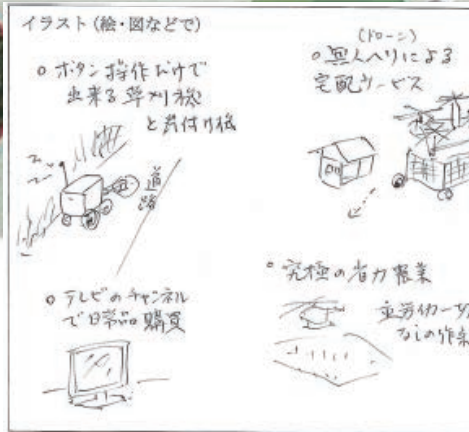 イラスト（絵・図などで）
○ ボタン操作だけで
出来る草刈機
と片付け機
道路
○ テレビのチャンネル
で日常品購買
(ドローン)
○無人ヘリによる
宅配サービス
○ 究極の省力農業
重労力一切
なしの作業